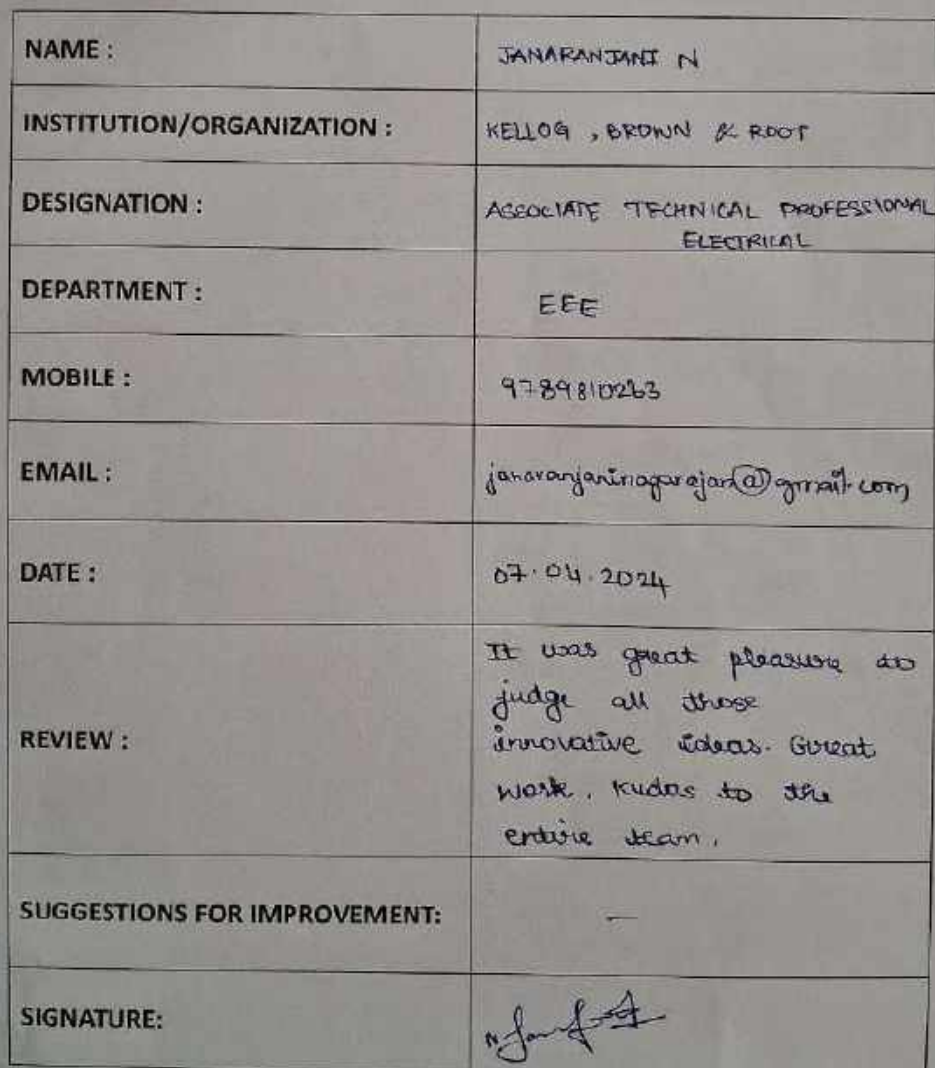 NAME : JANARANJANI N
INSTITUTION/ORGANIZATION : KELLOG , BROWN & ROOT
DESIGNATION : ASSOCIATE TECHNICAL PROFESSIONAL
ELECTRICAL
DEPARTMENT : EEE
MOBILE : 9789810263
EMAIL : janaranjaninagarajan@gmail.com
DATE : 07.04.2024
REVIEW : It was great pleasure to
judge all those
innovative ideas. Great
work. Kudos to the
entire team.
SUGGESTIONS FOR IMPROVEMENT: —
SIGNATURE: